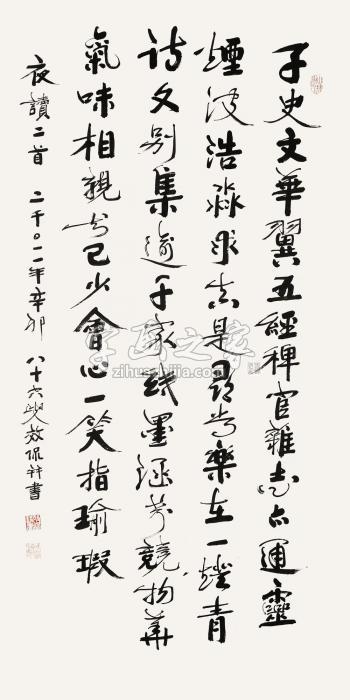 子史文華翼五經稗官雜志亦通靈
煙波浩淼求真是尋常樂在一燈青
詩文別集逾千家墨涵芬競物華
氣味相親知己少會心一笑指瑜瑕
夜讀二首 二千〇一一年辛卯 八十六叟并書
字画之家